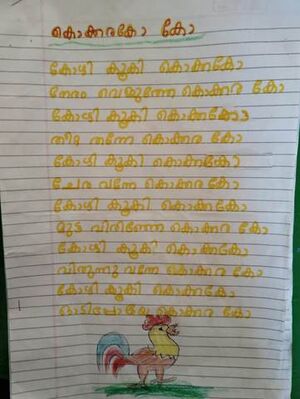 കൊക്കരകോ കോ
കോഴി കൂകി കൊക്കകോ
നേരം വെളുത്തേ കൊക്കര കോ
കോഴി കൂകി കൊക്കകോ
തന്നേ കൊക്കര കോ
കോഴി കൂകി കൊക്കകോ
ചേര വന്നേ കൊക്കര കോ
കോഴി കൂകി കൊക്കകോ
മുട്ട വിരിഞ്ഞേ കൊക്കര കോ
കോഴി കൂകി കൊക്കകോ
വിരുന്നു വന്നേ കൊക്കര കോ
കോഴി കൂകി കൊക്കകോ
ഓടിപോയേ കൊക്കര കോ